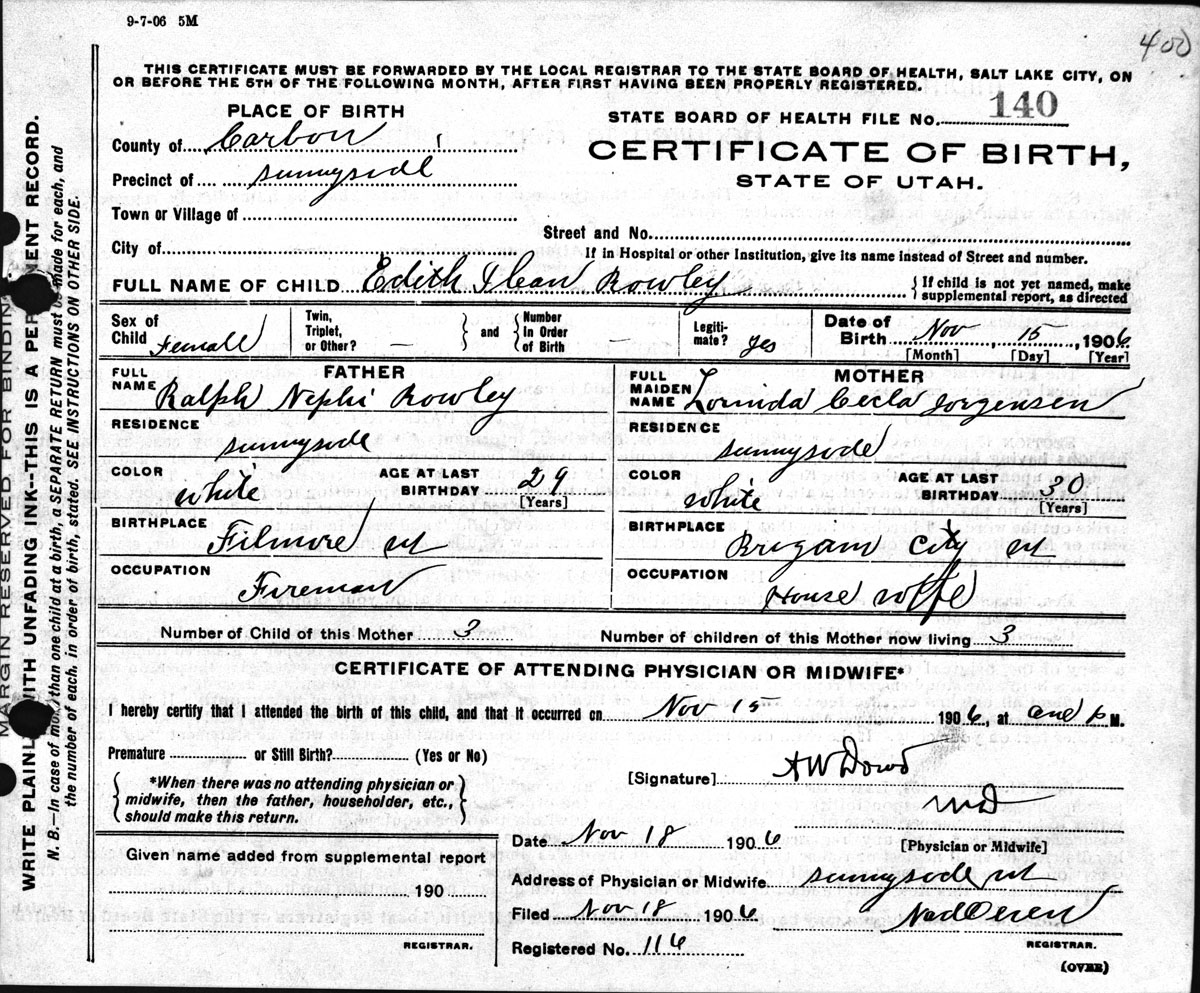 9-7-06 5M
400
THIS CERTIFICATE MUST BE FORWARDED BY THE LOCAL REGISTRAR TO THE STATE BOARD OF HEALTH, SALT LAKE CITY, ON
OR BEFORE THE 5TH OF THE FOLLOWING MONTH, AFTER FIRST HAVING BEEN PROPERLY REGISTERED.
PLACE OF BIRTH
County of Carbon
Precinct of Sunnyside
Town or Village of
City of
STATE BOARD OF HEALTH FILE No. 140
CERTIFICATE OF BIRTH,
STATE OF UTAH.
Street and No.
If in Hospital or other Institution, give its name instead of Street and number.
FULL NAME OF CHILD Edith Ilean Rowley
If child is not yet named, make
supplemental report, as directed
Sex of Child Female
Twin, Triplet, or Other? —
and
Number in Order of Birth —
Legitimate? yes
Date of Birth Nov 15, 1906
[Month] [Day] [Year]
FATHER
FULL NAME Ralph Nephi Rowley
RESIDENCE Sunnyside
COLOR White
AGE AT LAST BIRTHDAY 29
[Years]
BIRTHPLACE Filmore ut
OCCUPATION Fireman
MOTHER
FULL MAIDEN NAME Lorinda Cecla Jorgensen
RESIDENCE Sunnyside
COLOR White
AGE AT LAST BIRTHDAY 30
[Years]
BIRTHPLACE Brigam City ut
OCCUPATION House wife
Number of Child of this Mother 3
Number of children of this Mother now living 3
CERTIFICATE OF ATTENDING PHYSICIAN OR MIDWIFE*
I hereby certify that I attended the birth of this child, and that it occurred on Nov 15 1906, at one P M.
Premature or Still Birth? (Yes or No)
*When there was no attending physician or
midwife, then the father, householder, etc.,
should make this return.
[Signature] A W Dowd
MD
Date Nov 18 1906
[Physician or Midwife]
Given name added from supplemental report
190
REGISTRAR.
Address of Physician or Midwife. Sunnyside ut
Filed Nov 18 1906
REGISTRAR.
Registered No. 116
(OVER)
MARGIN RESERVED FOR BINDING
WRITE PLAINLY WITH UNFADING INK--THIS IS A PERMANENT RECORD.
N. B.—In case of more than one child at a birth, a SEPARATE RETURN must be made for each, and
the number of each, in order of birth, stated. SEE INSTRUCTIONS ON OTHER SIDE.